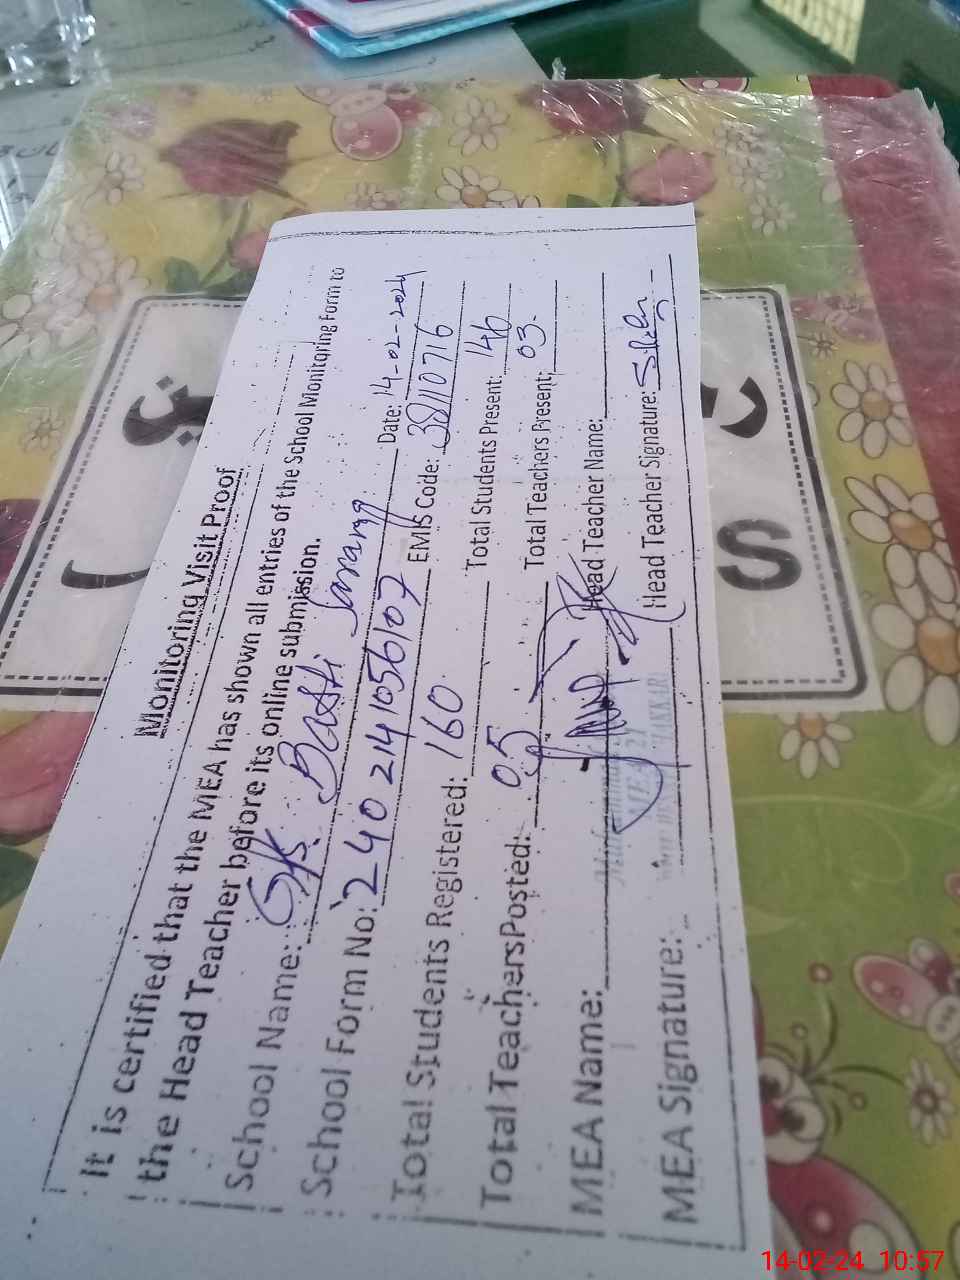 Monitoring Visit Proof
It is certified that the MEA has shown all entries of the School Monitoring Form to
the Head Teacher before its online submission.
School Name: GPS. Basti Sarang Date: 14-02-2024
School Form No: 24021410556107 EMIS Code: 38110716
Total Students Registered: 160 Total Students Present: 146
Total TeachersPosted: 05 Total Teachers Present: 03
MEA Name: Head Teacher Name:
MEA 21
MEA Signature: Head Teacher Signature:
S
14-02-24 10:57